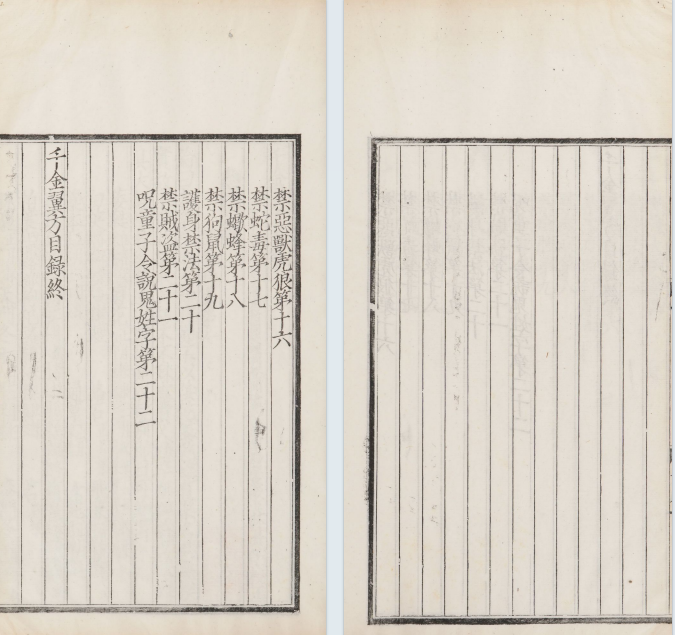 禁惡獸虎狼第十六
禁蛇毒第十七
禁蠍蜂第十八
禁狗鼠第十九
護身禁法第二十
禁賊盜第二十一
呪童子令說鬼姓字第二十二
千金翼方目錄終